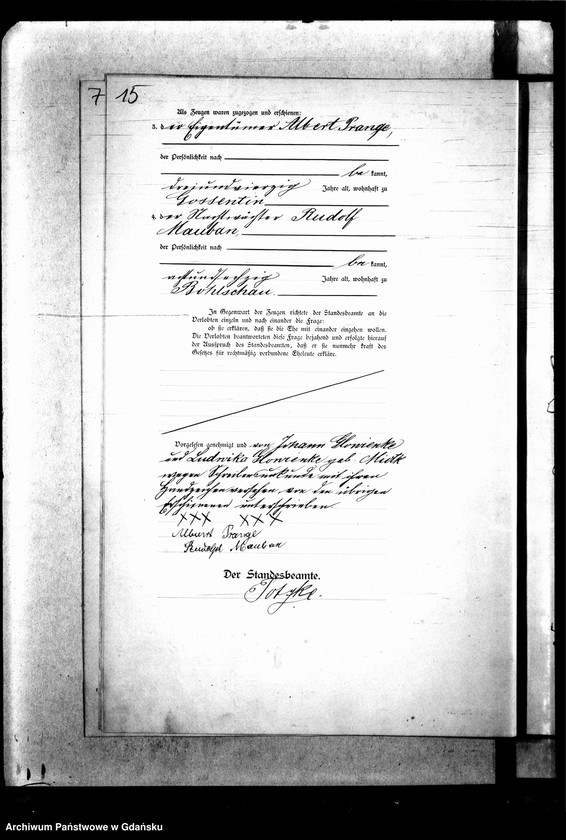 7 15
Als Zeugen waren zugezogen und erschienen:
3. der Eigentümer Albert Prange,
der Persönlichkeit nach
bekannt,
dreiundvierzig Jahre alt, wohnhaft zu
Gossentin
4. der Nachtwächter Rudolf
Mauban,
der Persönlichkeit nach
bekannt,
achtundsechzig Jahre alt, wohnhaft zu
Bohlschau.
In Gegenwart der Zeugen richtete der Standesbeamte an die
Verlobten einzeln und nach einander die Frage:
ob sie erklären, daß sie die Ehe mit einander eingehen wollen.
Die Verlobten beantworteten diese Frage bejahend und erfolgte hierauf
der Ausspruch des Standesbeamten, daß er sie nunmehr kraft des
Gesetzes für rechtmäßig verbundene Eheleute erkläre.
Vorgelesen genehmigt und von Johann Slowienke
und Ludwika Slowienke geb. Miotk
wegen Schreibensunkunde mit ihren
Handzeichen versehen, von den übrigen
Erschienenen unterschrieben.
XXX XXX
Albert Prange
Rudolf Mauban
Der Standesbeamte.
Potzke.
Archiwum Państwowe w Gdańsku